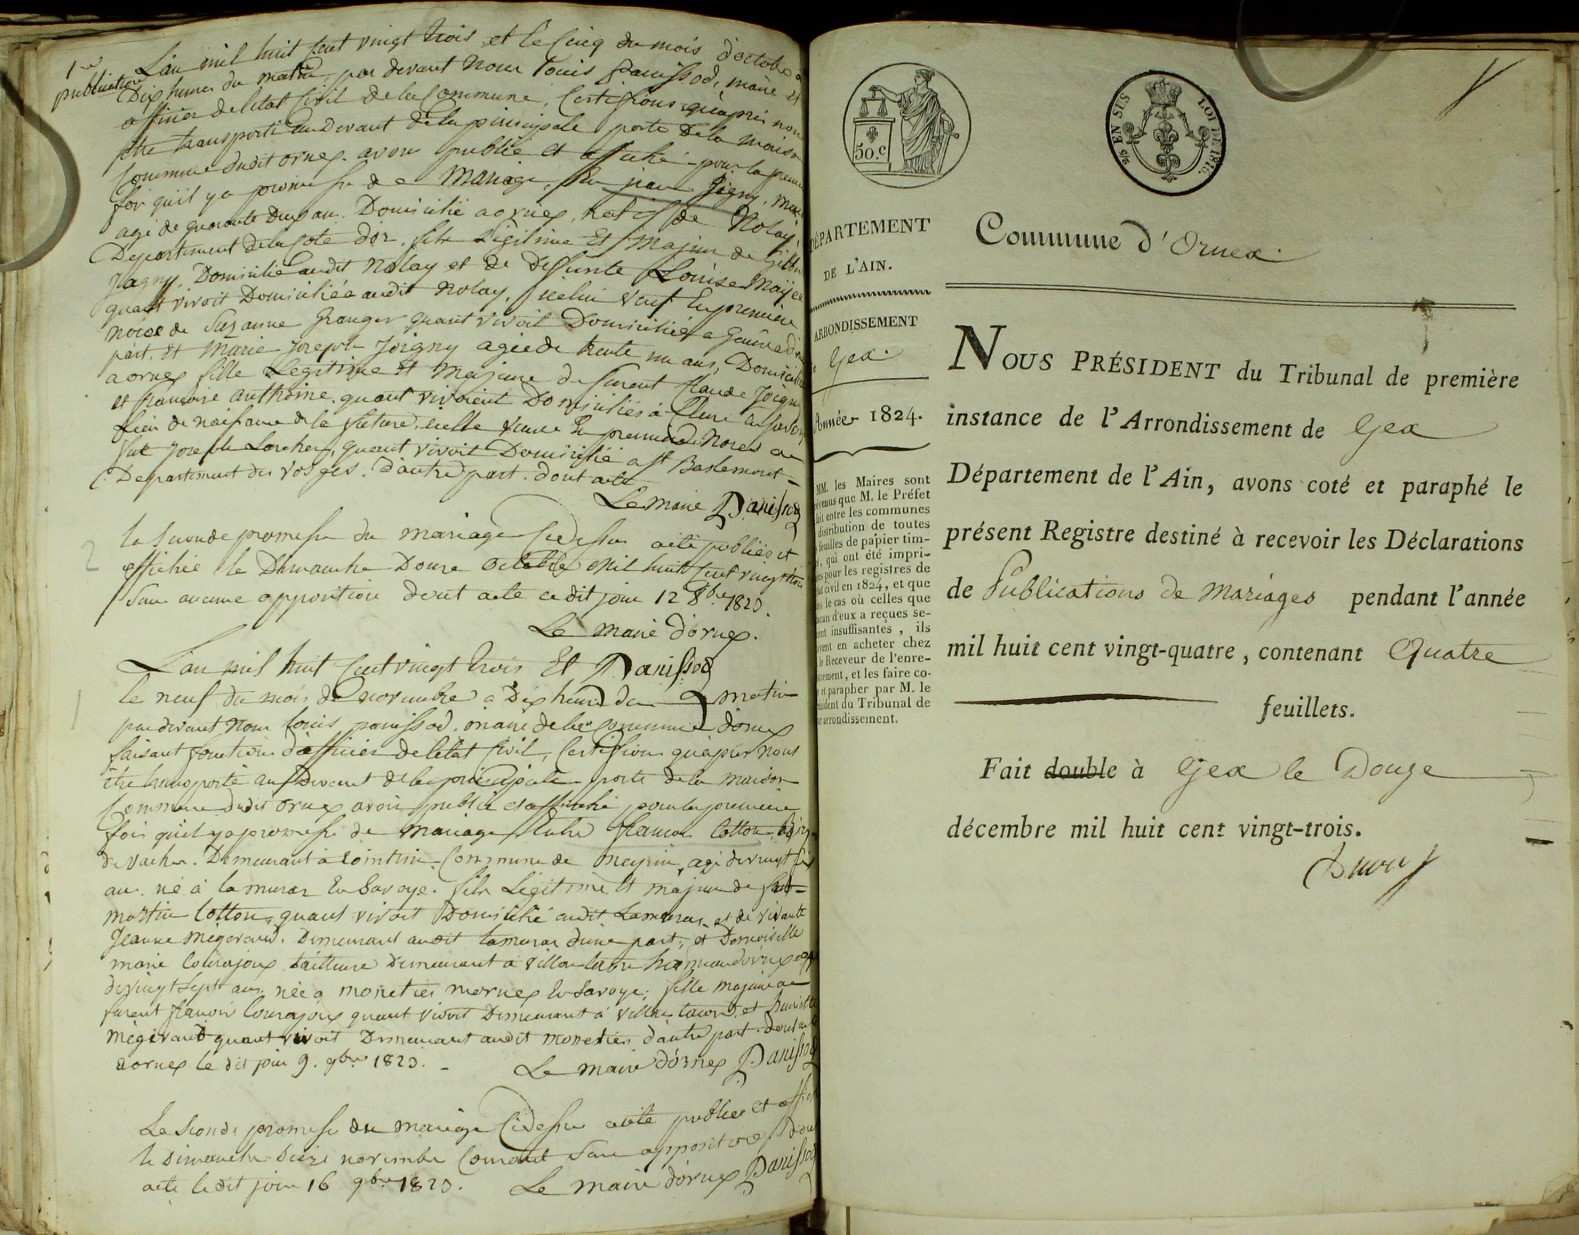 1re
publication
L'an mil huit cent vingt trois et le cinq du mois d'octobre a
Dix heures du matin, par devant Nous Louis Panissod, maire et
officier de letat Civil de la Commune, Certifions qu'apres nous
être transporté au Devant de la principale porte De la maison
Commune dudit ornex. avons publié et affiché pour la premiere
fois qu'il y a promesse de Mariage, jean jigny,
agé de quarante ans. Domicilié a ornex, natif de Nolay,
Departement de la Cote d'or. fils Légitime Et Majeur de
jagny. Domicilié audit Nolay et de Defunte Louise
quant vivoit Domiciliée audit Nolay, icelui veuf En premiere
noces de Suzanne Granger quant vivoit Domiciliée a Genève d'une
part. et Marie joseph joigny agée de trente un ans, Domiciliée
a ornex fille Légitime et Majeure de furent Claude joigny
et francoise anthoine. quant vivoient Domiciliés à
lieu de naissance de la future, icelle veuve En premiere Noces de
fut joseph quant vivoit Domicilié a St Baslemont
Departement des vosges. d'autre part. dont acte
Le maire Panissod
2
la seconde promesse du mariage Cidessus acité publiée et
affichée le Dimanche Douze octobre Mil huit cent vingt trois
Sans aucune opposition dont acte ce dit jour 12 8bre 1823.
Le maire d'ornex.
Panissod
1
L'an mil huit Cent vingt trois Et
le neuf du mois de novembre a Dix heures du matin
par devant Nous Louis panissod, maire de la Commune d'ornex
faisant fonction d'officier de letat Civil, Certifions qu'après Nous
être transporté au Devant de la principale porte de la maison
Commune dudit ornex avons publié et affiché pour la premiere
fois qu'il y a promesse de Mariage Entre francois Cotton,
de vaches. Demeurant à Cointrin Commune de Meyrin, agé de vingt
ans. né à Lamuraz En Savoye. fils Légitime Et majeur de
martin Cotton, quant vivoit Domicilié audit Lamuraz et de vivante
Jeanne Mégevand. Demeurant audit Lamuraz d'une part, et Demoiselle
marie Courajoux tailleuse Demeurant à d'ornex
de vingt sept ans. née a Monetier mornex En Savoye, fille majeure de
furent francois Courajoux quant vivoit Demeurant à et
Mégevand quant vivoit Demeurant audit Monetier d'autre part. dont acte
a ornex le dit jour 9. 9bre 1823.
Le maire d'ornex Panissod
La seconde promesse du mariage Cidessus acité publiée et
le dimanche seize novembre Courant Sans opposition dont
acte ledit jour 16 9bre 1823.
Le maire d'ornex Panissod
50.c
EN SUS
LOI DE 1816.
DÉPARTEMENT
DE L'AIN.
ARRONDISSEMENT
Gex.
Année 1824.
MM. les Maires sont
prévenus que M. le Préfet
fait entre les communes
distribution de toutes
feuilles de papier tim-
, qui ont été impri-
pour les registres de
civil en 1824, et que
le cas où celles que
chacun d'eux a reçues se-
insuffisantes, ils
en acheter chez
le Receveur de l'enre-
et les faire co-
et parapher par M. le
du Tribunal de
arrondissement.
Commune d'Ornex.
NOUS PRÉSIDENT du Tribunal de première
instance de l'Arrondissement de Gex
Département de l'Ain, avons coté et paraphé le
présent Registre destiné à recevoir les Déclarations
de Publications de Mariages pendant l'année
mil huit cent vingt-quatre, contenant Quatre
feuillets.
Fait double à Gex le Douze
décembre mil huit cent vingt-trois.